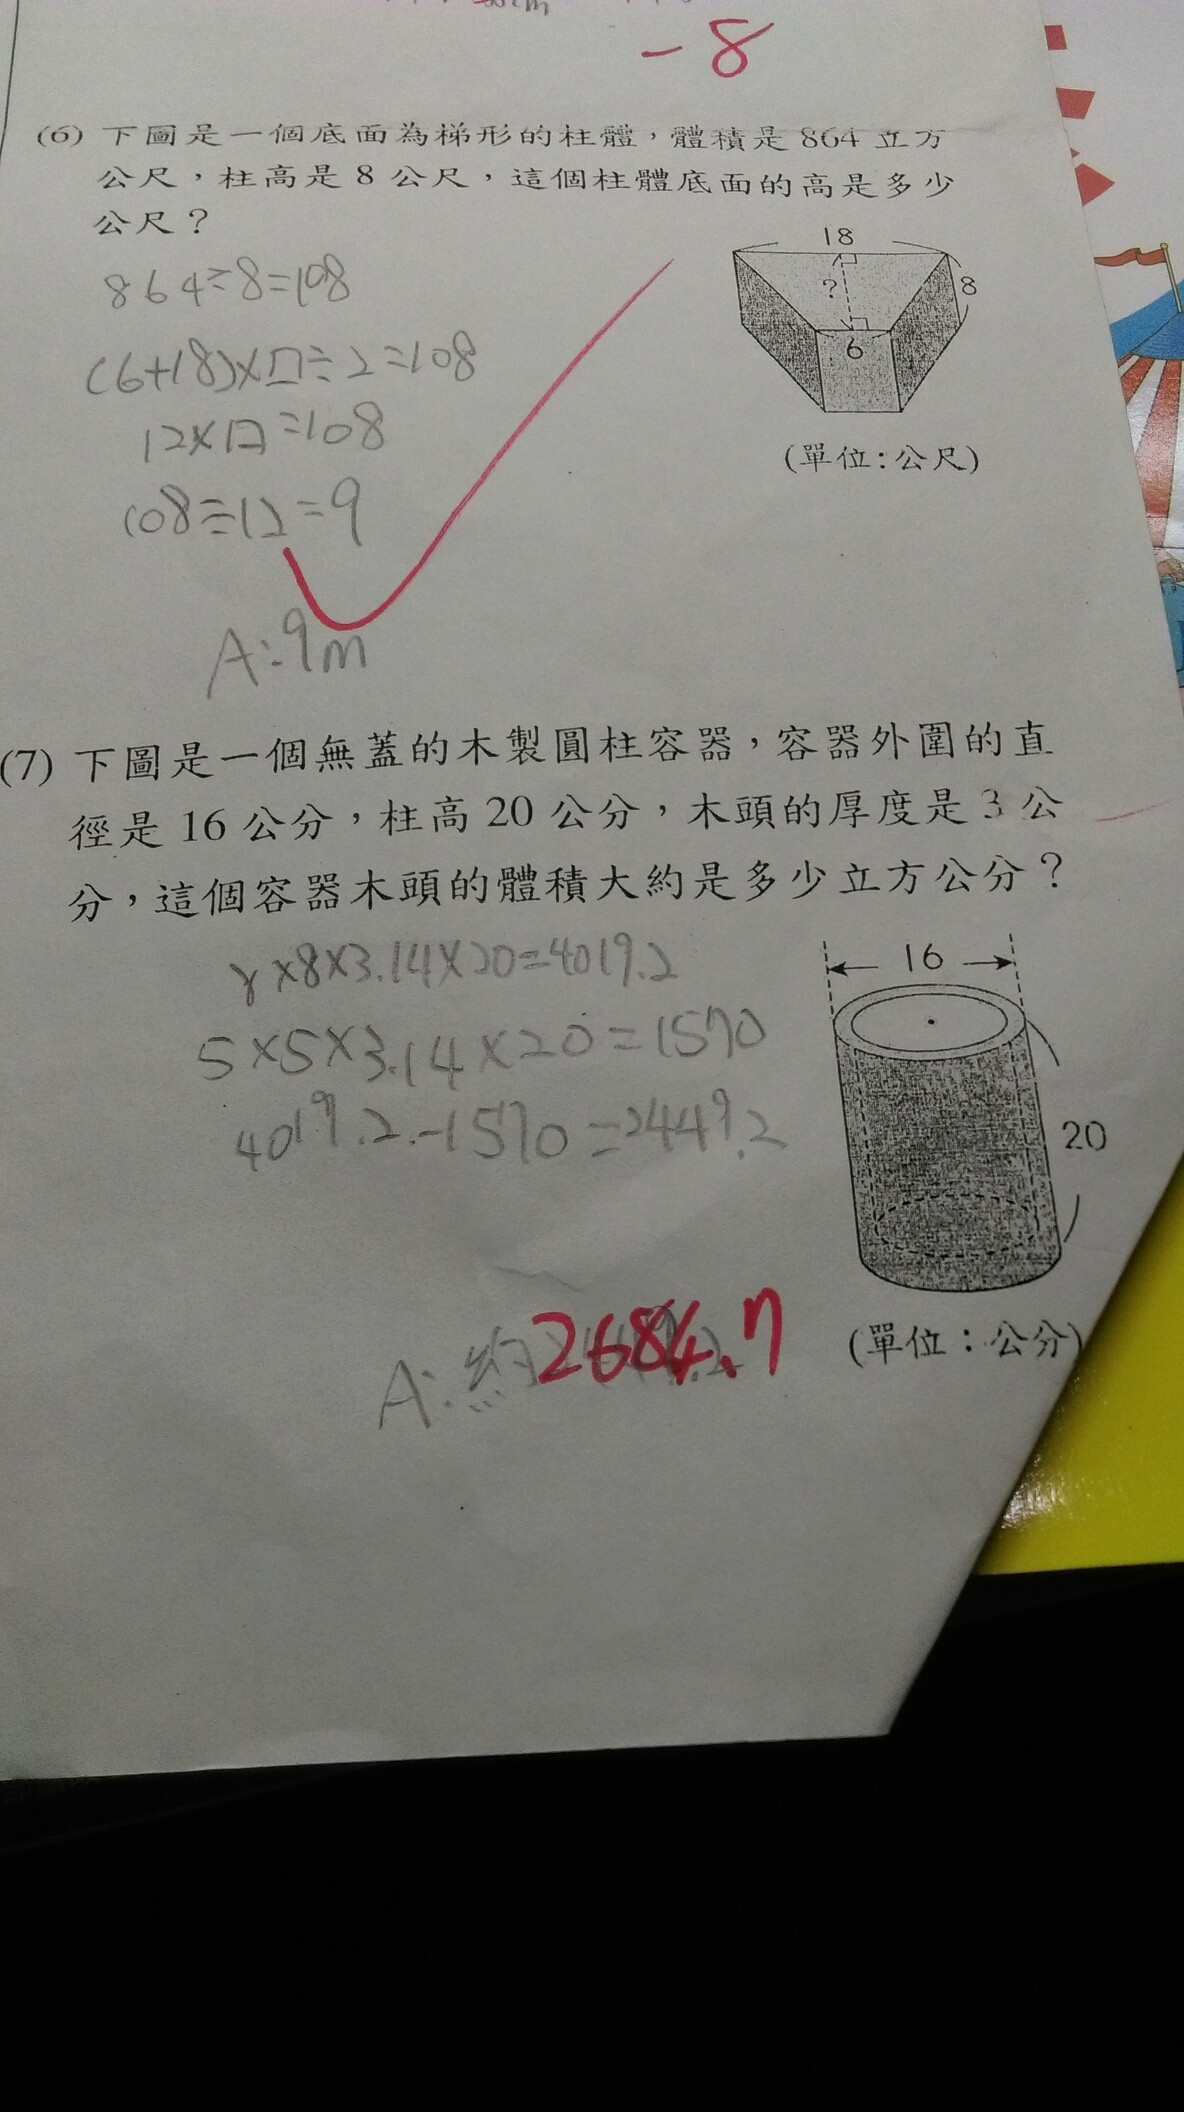 -8
(6) 下圖是一個底面為梯形的柱體，體積是 864 立方
公尺，柱高是 8 公尺，這個柱體底面的高是多少
公尺？
18
?
8
6
(單位:公尺)
864÷8=108
(6+18)×口÷2=108
12×口=108
108÷12=9
A:9m
(7) 下圖是一個無蓋的木製圓柱容器，容器外圍的直
徑是 16 公分，柱高 20 公分，木頭的厚度是 3 公
分，這個容器木頭的體積大約是多少立方公分？
8×8×3.14×20=4019.2
5×5×3.14×20=1570
4019.2-1570=2449.2
16
20
A:約2684.7
(單位：公分)